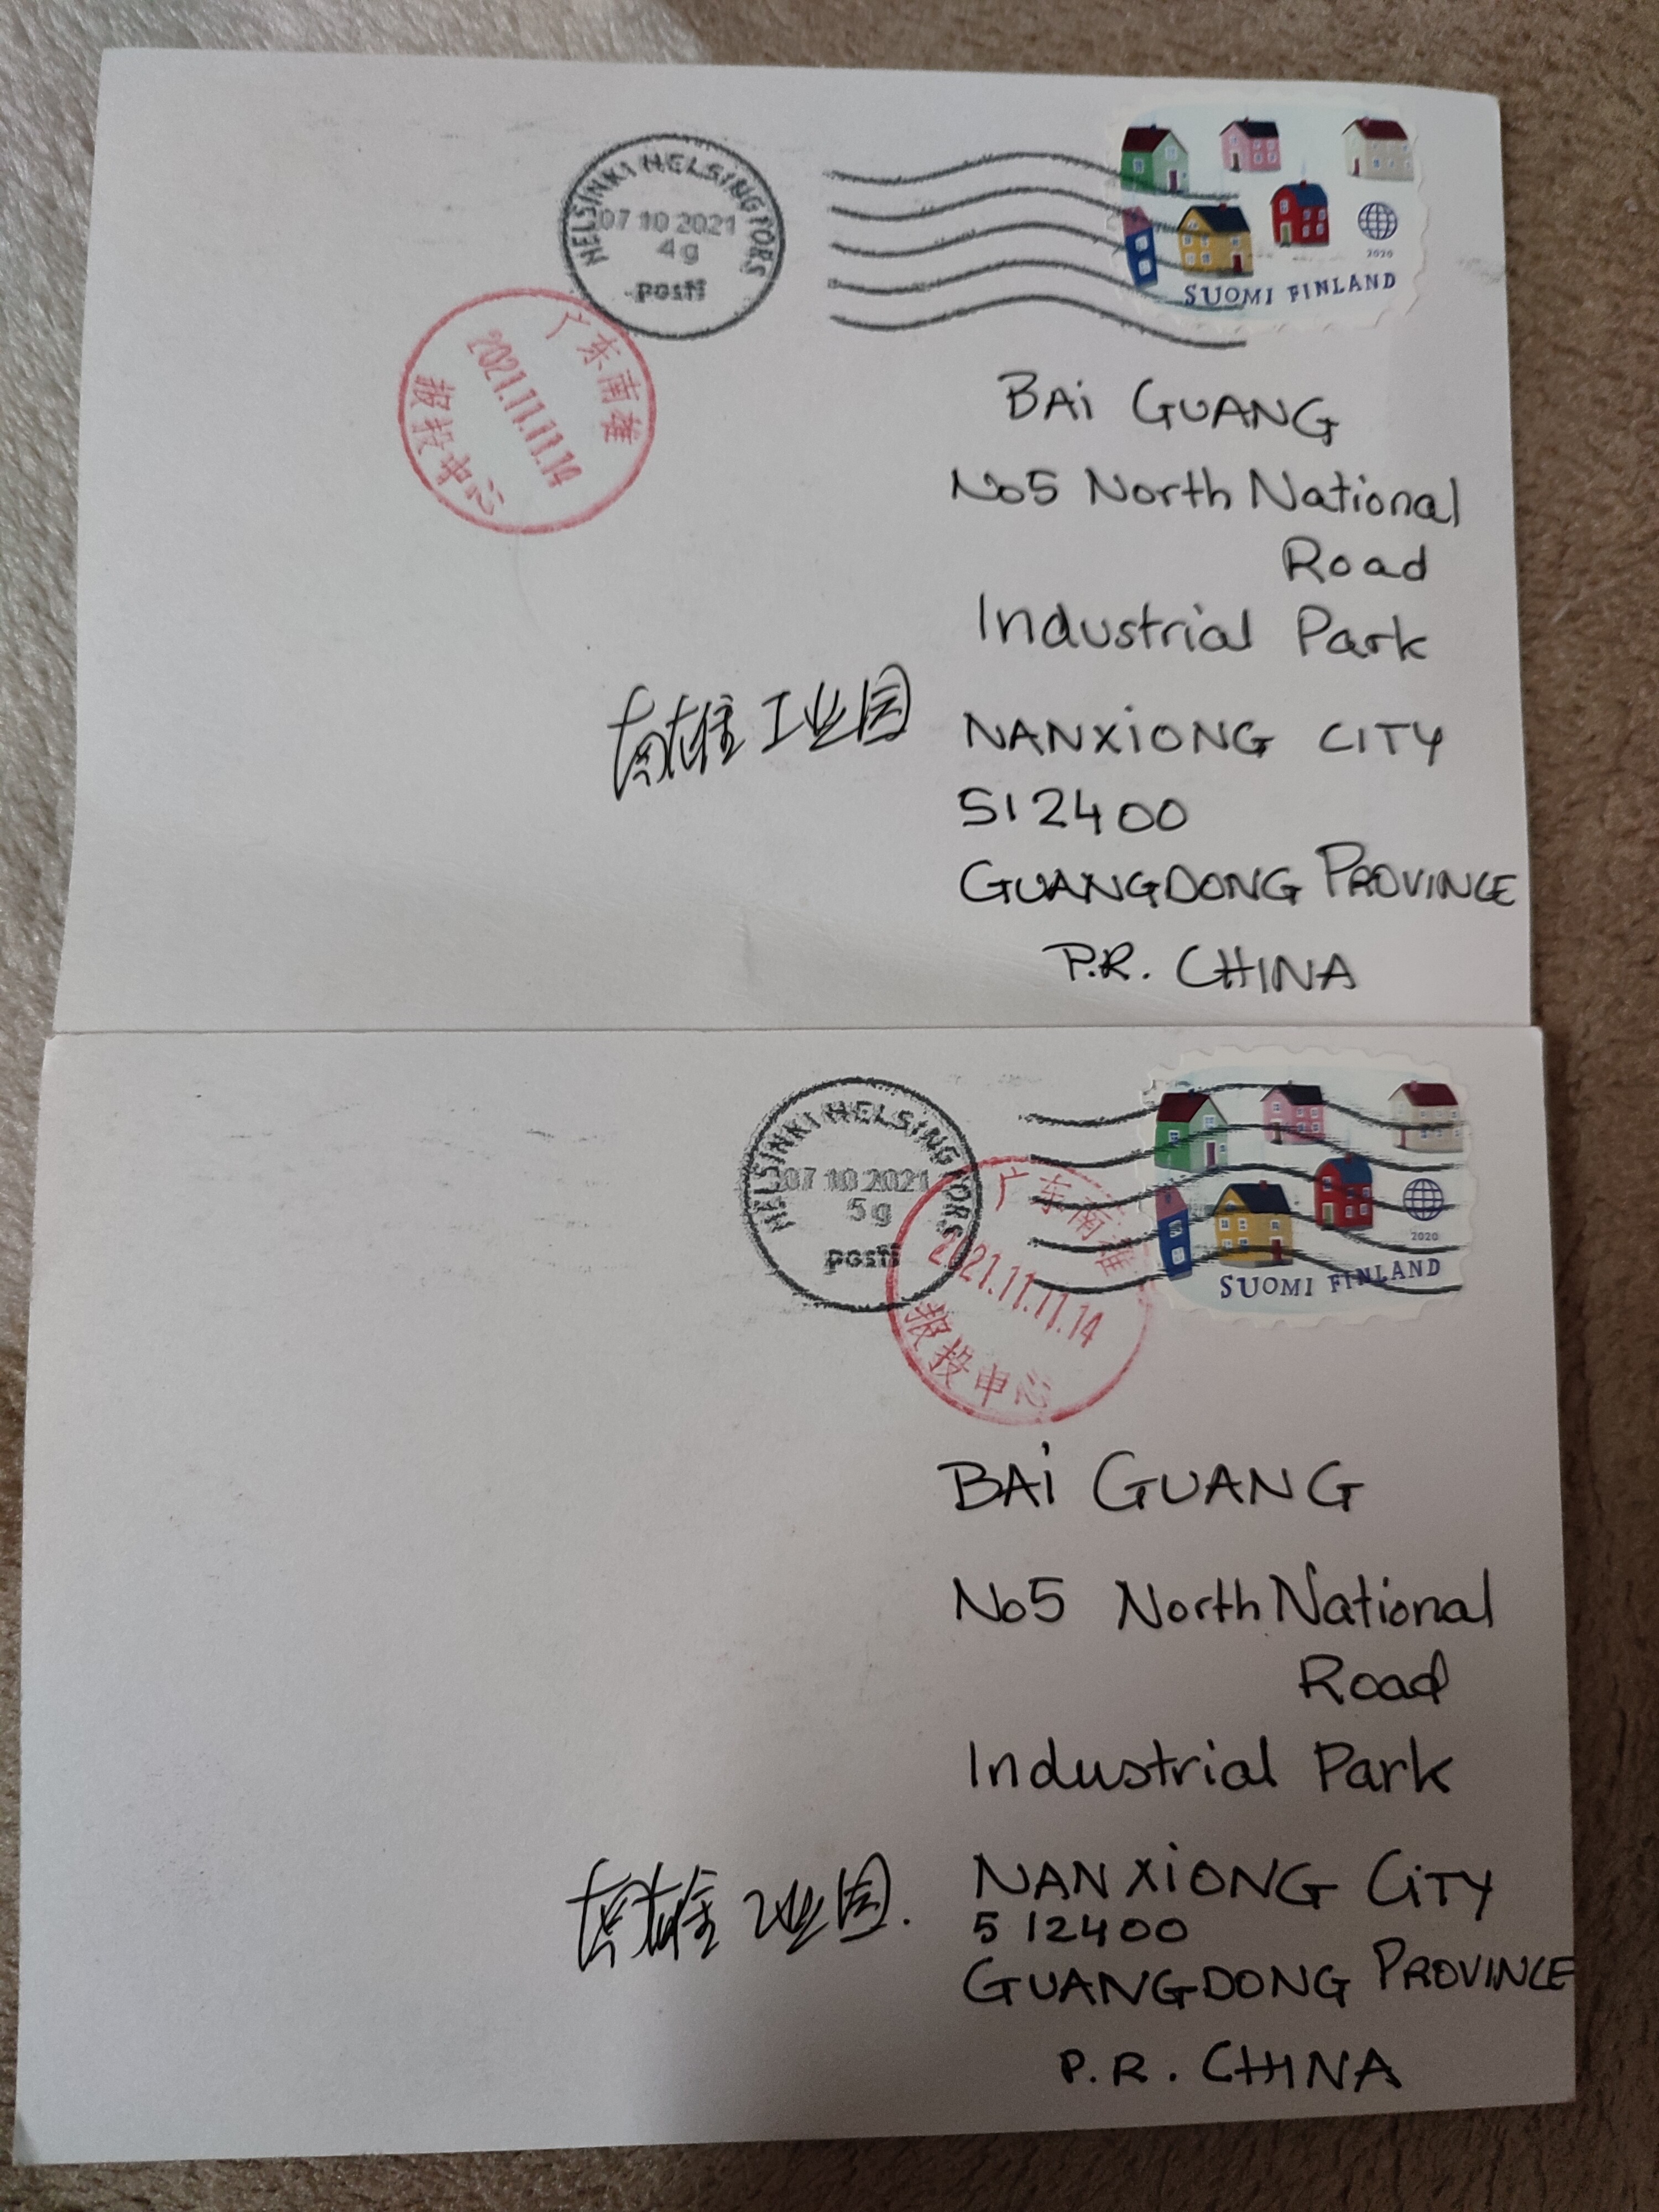 HELSINKI HELSINGFORS
07 10 2021
4g
posti
2020
SUOMI FINLAND
广东南雄
2021.11.11.14
报投中心
BAi GUANG
No5 North National
Road
Industrial Park
南雄工业园
NANXiONG CITY
512400
GUANGDONG PROVINCE
P.R. CHINA
HELSINKI HELSINGFORS
07 10 2021
5g
posti
2020
SUOMI FINLAND
广东南雄
2021.11.11.14
报投中心
BAi GUANG
No5 North National
Road
Industrial Park
南雄工业园.
NANXiONG CiTY
512400
GUANGDONG PROVINCE
P.R. CHINA